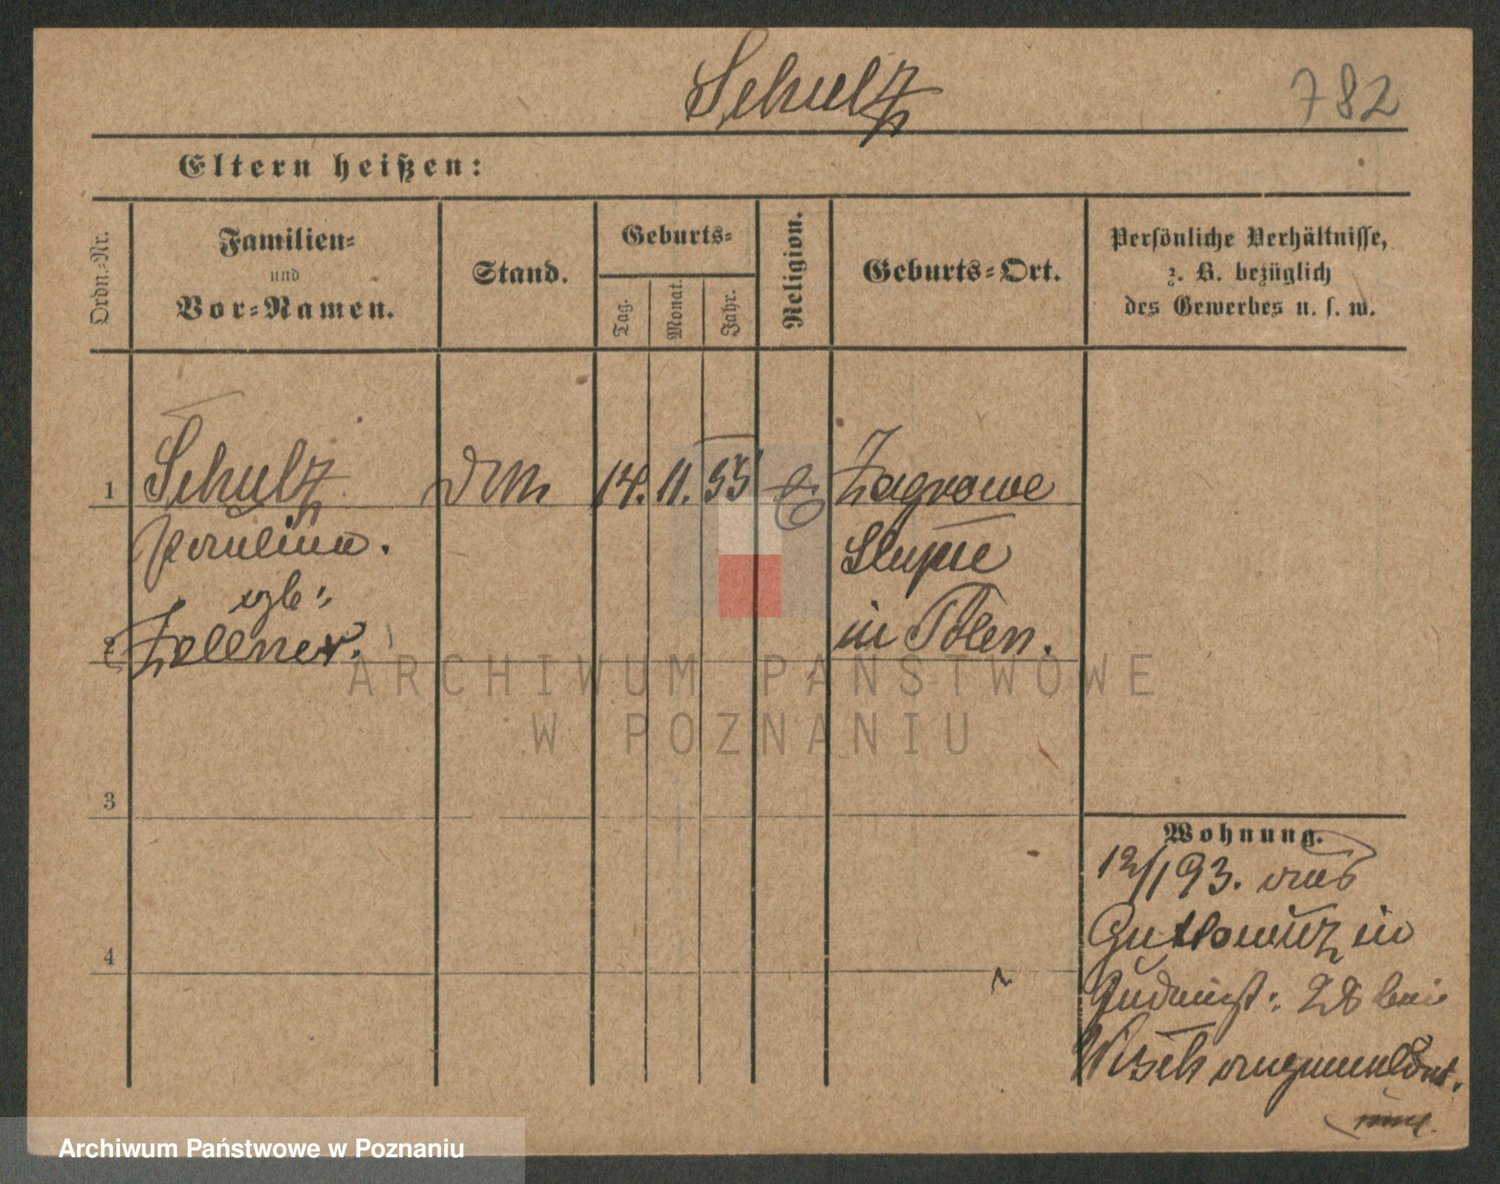 Schulz
782
Eltern heißen:
Ordn.-Nr.
Familien-
und
Vor-Namen.
Stand.
Geburts-
Tag.
Monat.
Jahr.
Religion.
Geburts-Ort.
Persönliche Verhältnisse,
z. B. bezüglich
des Gewerbes u. s. w.
1
Schulz
14.
11.
55
Zagrowe
Paulina.
Slupce
geb:
in Polen.
2
Zellner.
ARCHIWUM PAŃSTWOWE
W POZNANIU
3
Wohnung.
12/1 93. aus
in
4
28 bei
angemeldet.
Archiwum Państwowe w Poznaniu